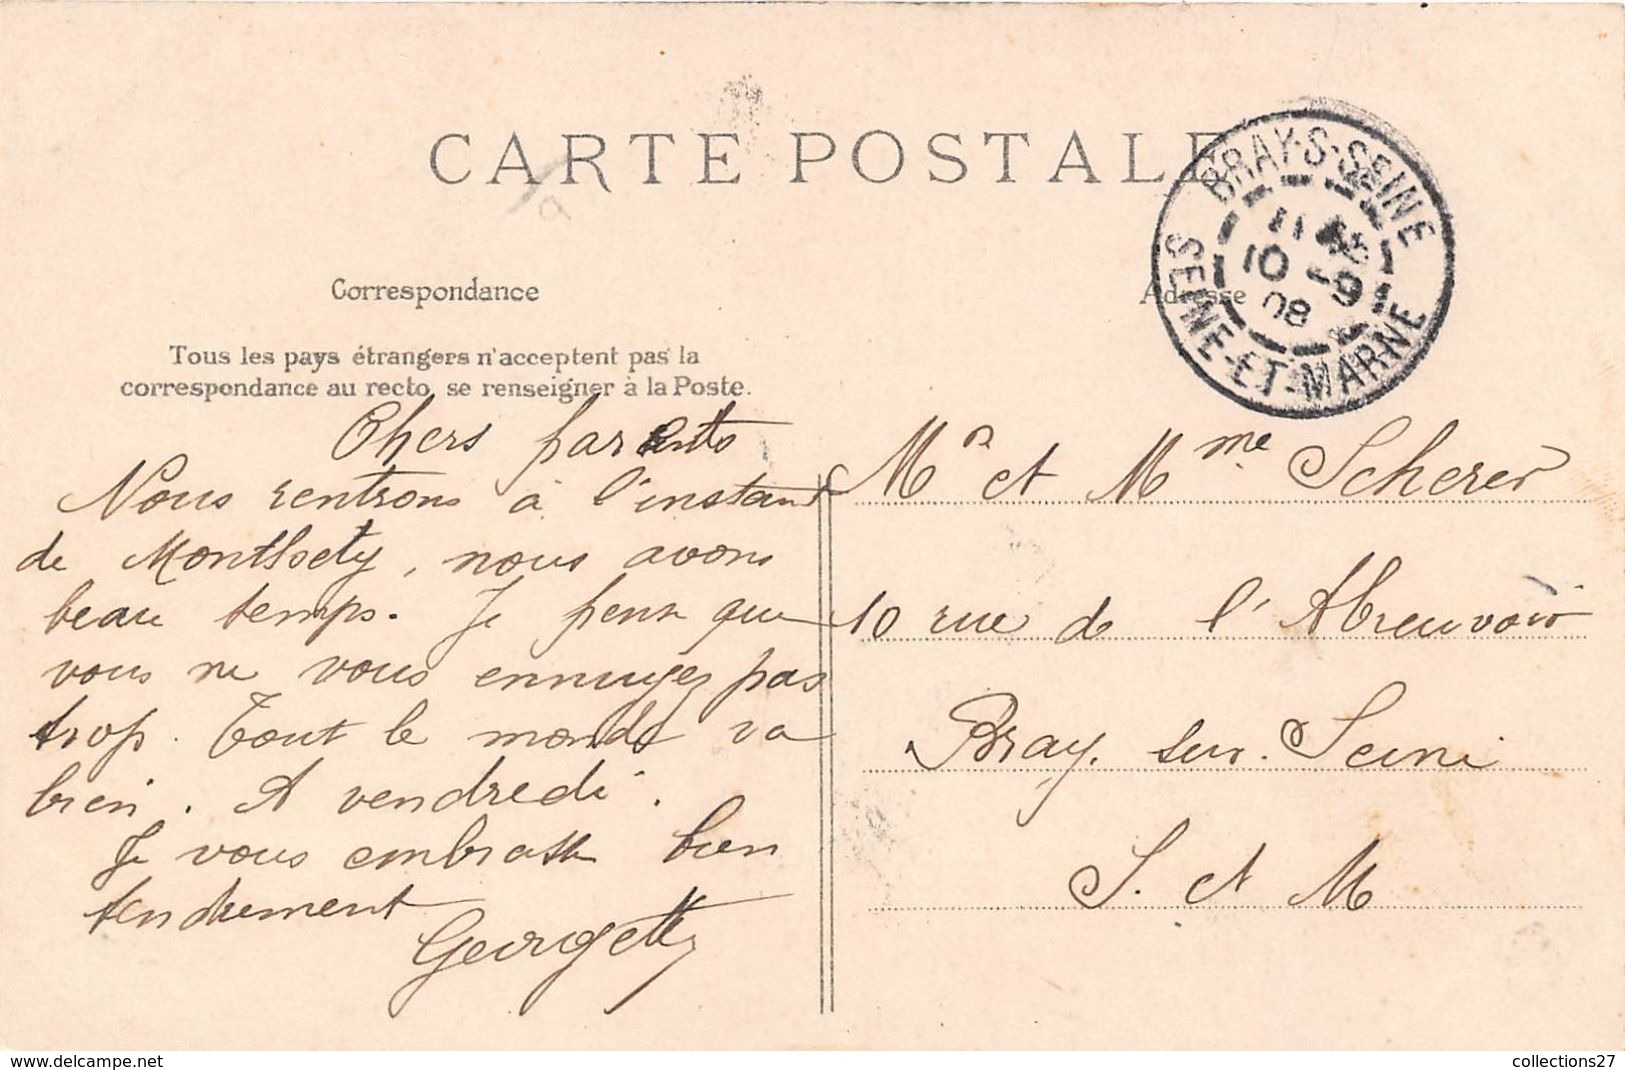 CARTE POSTALE
BRAY-S-SEINE
11
10 -9
08
SEINE-ET-MARNE
Correspondance
Adresse
Tous les pays étrangers n'acceptent pas la
correspondance au recto, se renseigner à la Poste.
Chers parents
Nous rentrons à l'instant
de Monthbety, nous avons
beau temps. Je pense que
vous ne vous ennuyez pas
trop. Tout le monde va
bien. A vendredi.
Je vous embrasse bien
tendrement
Georgette
Mr et Mme Scherer
10 rue de l'Abreuvoir
Bray. sur. Seine
S. et M
www.delcampe.net
collections27